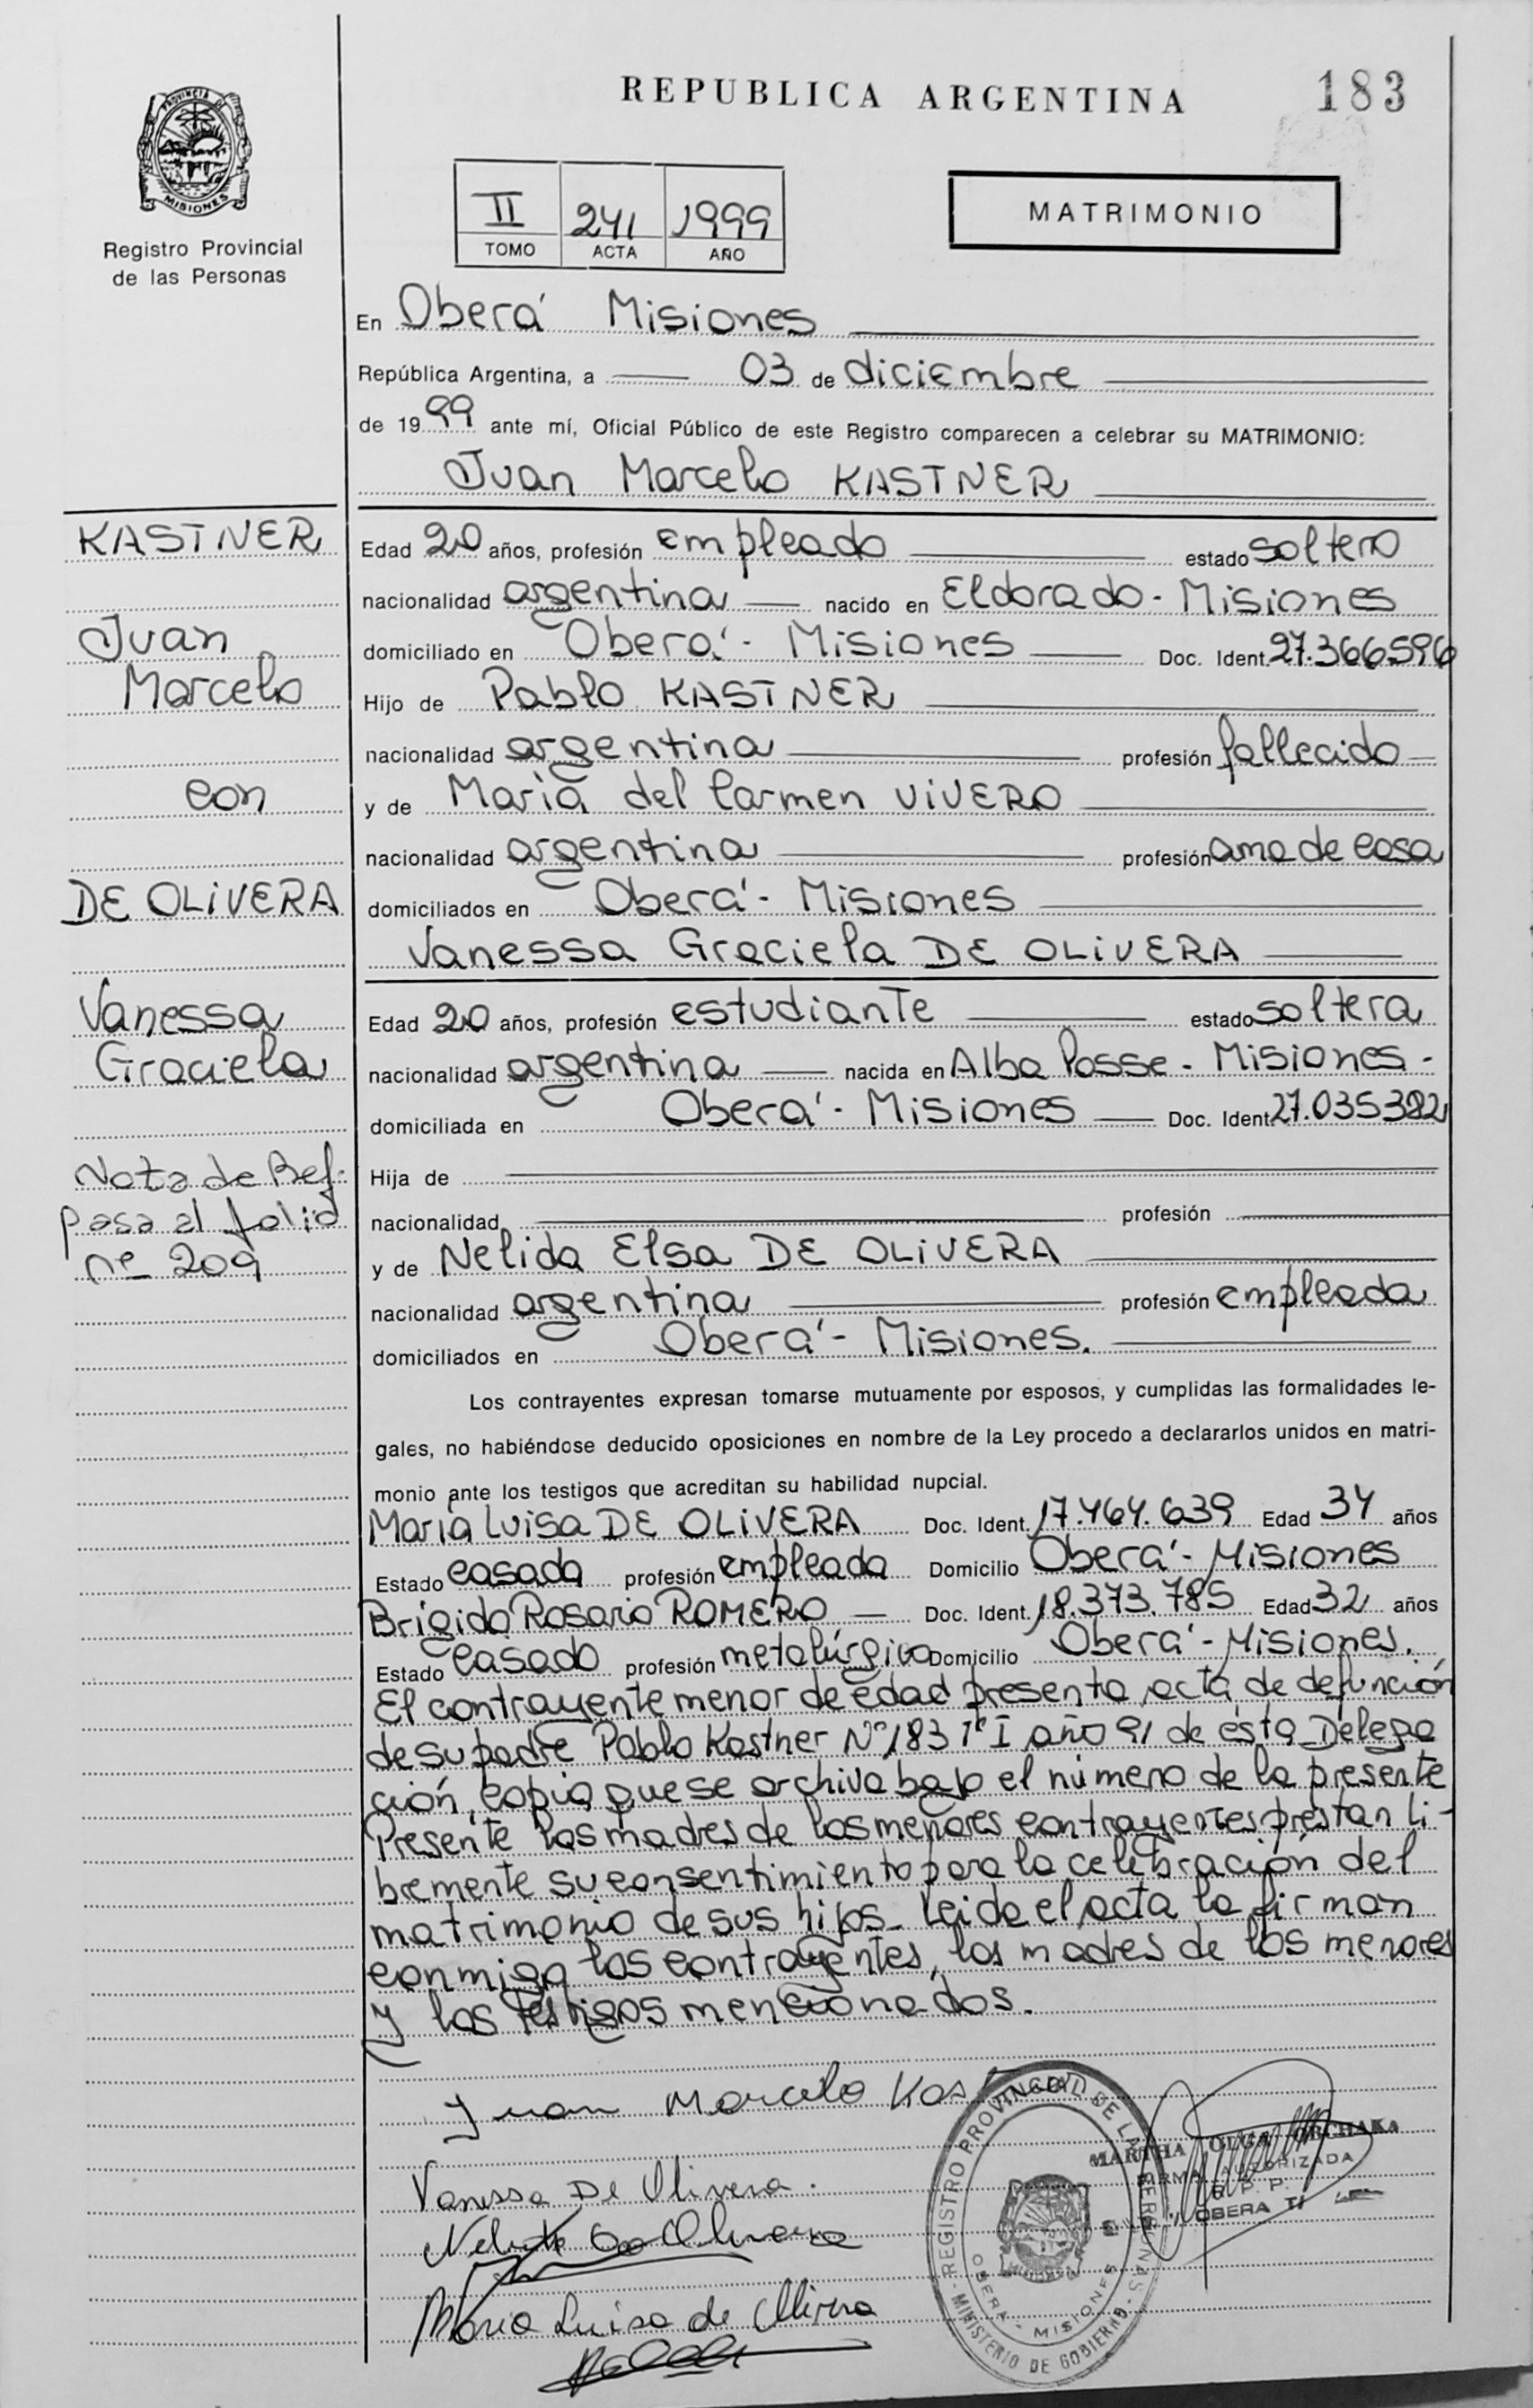 REPUBLICA ARGENTINA
183
PROVINCIA DE
MISIONES
Registro Provincial
de las Personas
II 241 1999
TOMO ACTA AÑO
MATRIMONIO
En Oberá Misiones
República Argentina, a 03 de diciembre
de 1999 ante mí, Oficial Público de este Registro comparecen a celebrar su MATRIMONIO:
Juan Marcelo KASTNER
KASTNER
Juan
Marcelo
con
DE OLIVERA
Vanessa
Graciela
Nota de Ref.
pasa al folio
nº 209
Edad 20 años, profesión empleado estado soltero
nacionalidad argentina nacido en Eldorado - Misiones
domiciliado en Oberá - Misiones Doc. Ident. 27.366.596
Hijo de Pablo KASTNER
nacionalidad argentina profesión fallecido
y de María del Carmen VIVERO
nacionalidad argentina profesión ama de casa
domiciliados en Oberá - Misiones
Vanessa Graciela DE OLIVERA
Edad 20 años, profesión estudiante estado soltera
nacionalidad argentina nacida en Alba Posse - Misiones -
domiciliada en Oberá - Misiones Doc. Ident. 27.035.382
Hija de
nacionalidad profesión
y de Nelida Elsa DE OLIVERA
nacionalidad argentina profesión empleada
domiciliados en Oberá - Misiones.
Los contrayentes expresan tomarse mutuamente por esposos, y cumplidas las formalidades le-
gales, no habiéndose deducido oposiciones en nombre de la Ley procedo a declararlos unidos en matri-
monio ante los testigos que acreditan su habilidad nupcial.
María Luisa DE OLIVERA Doc. Ident. 17.464.639 Edad 34 años
Estado casada profesión empleada Domicilio Oberá - Misiones
Brígido Rosario ROMERO Doc. Ident. 18.373.785 Edad 32 años
Estado casado profesión metalúrgico Domicilio Oberá - Misiones.
El contrayente menor de edad presenta acta de defunción
de su padre Pablo Kastner Nº 183 Tº I año 91 de esta Delega
ción, copia que se archiva bajo el número de la presente
Presente las madres de los menores contrayentes prestan li-
bremente su consentimiento para la celebración del
matrimonio de sus hijos. Leida el acta la firman
conmigo los contrayentes, las madres de los menores
y los testigos mencionados.
Juan Marcelo Kast
Vanessa De Olivera.
Maria Luisa de Olivera
REGISTRO PROVINCIAL DE LAS PERSONAS
MINISTERIO DE GOBIERNO
OBERA - MISIONES
MARTHA OLGA ORCHAKA
FIRMA AUTORIZADA
R. P. P.
OBERA